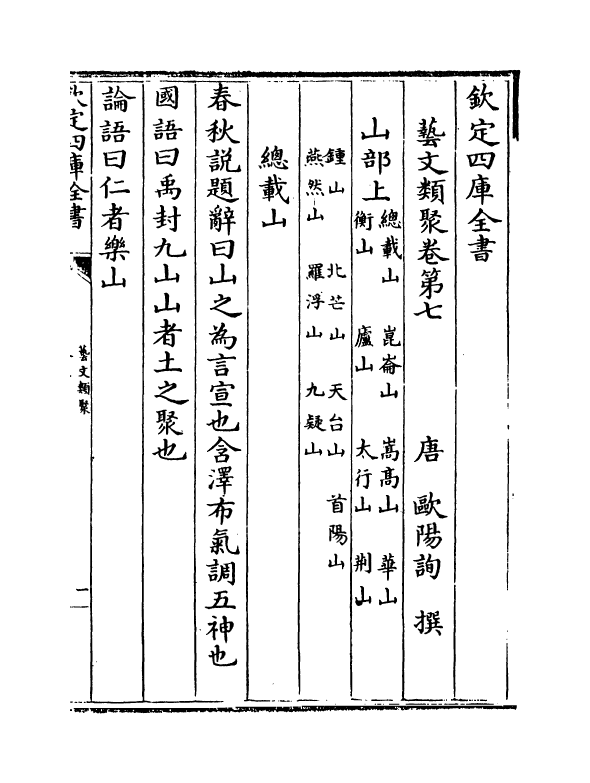 欽定四庫全書
藝文類聚卷第七
唐　歐陽詢　撰
山部上
總載山　崑崙山　嵩髙山　華山
衡山　廬山　太行山　荆山
鍾山　北芒山　天台山　首陽山
燕然山　羅浮山　九疑山
總載山
春秋説題辭曰山之為言宣也含澤布氣調五神也
國語曰禹封九山山者土之聚也
論語曰仁者樂山
欽定四庫全書
藝文類聚
一